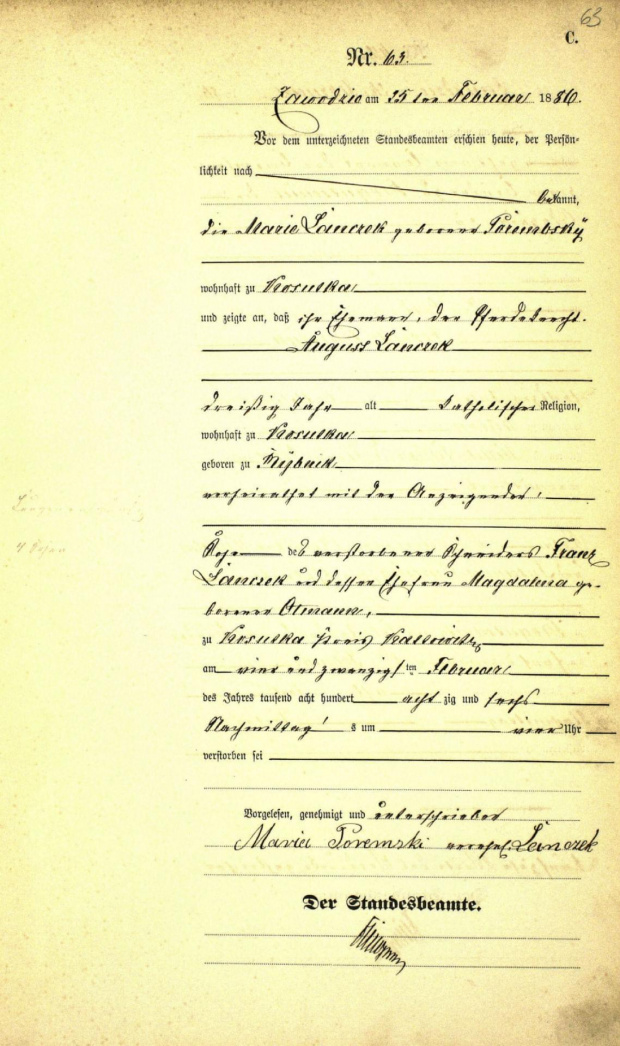 63
C.
Nr. 63.
Zawodzie am 25ten Februar 1886.
Vor dem unterzeichneten Standesbeamten erschien heute, der Persön-
lichkeit nach
bekannt,
die Marie Lanczek geborene Porembsky
wohnhaft zu Kosutka
und zeigte an, daß ihr Ehemann, der Pferdeknecht
August Lanczek
dreißig Jahr alt katholischer Religion,
wohnhaft zu Kosutka
geboren zu Rybnik
verheirathet mit der Anzeigenden,
Sohn des verstorbenen Schneiders Franz
Lanczek und dessen Ehefrau Magdalena ge-
borenen Otmann,
zu Kosutka Kreis Kattowitz
am vier und zwanzigsten Februar
des Jahres tausend acht hundert acht zig und sechs
Nachmittags um vier Uhr
verstorben sei
Vorgelesen, genehmigt und unterschrieben
Maria Poremski verehel. Lanczek
Der Standesbeamte.